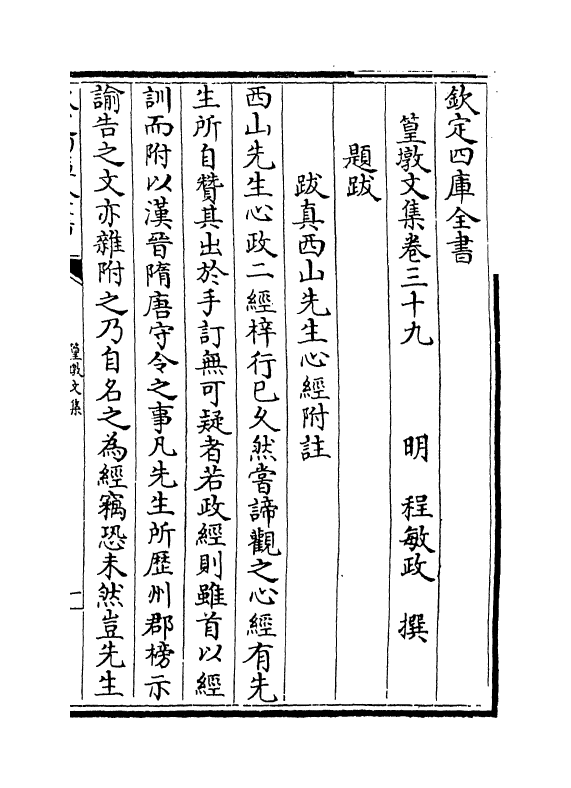 欽定四庫全書
篁墩文集卷三十九　明　程敏政　撰
題跋
跋真西山先生心經附註
西山先生心政二經梓行已久然嘗諦觀之心經有先
生所自贊其出於手訂無可疑者若政經則雖首以經
訓而附以漢晉隋唐守令之事凡先生所歴州郡榜示
諭告之文亦雜附之乃自名之為經竊恐未然豈先生
篁墩文集
一